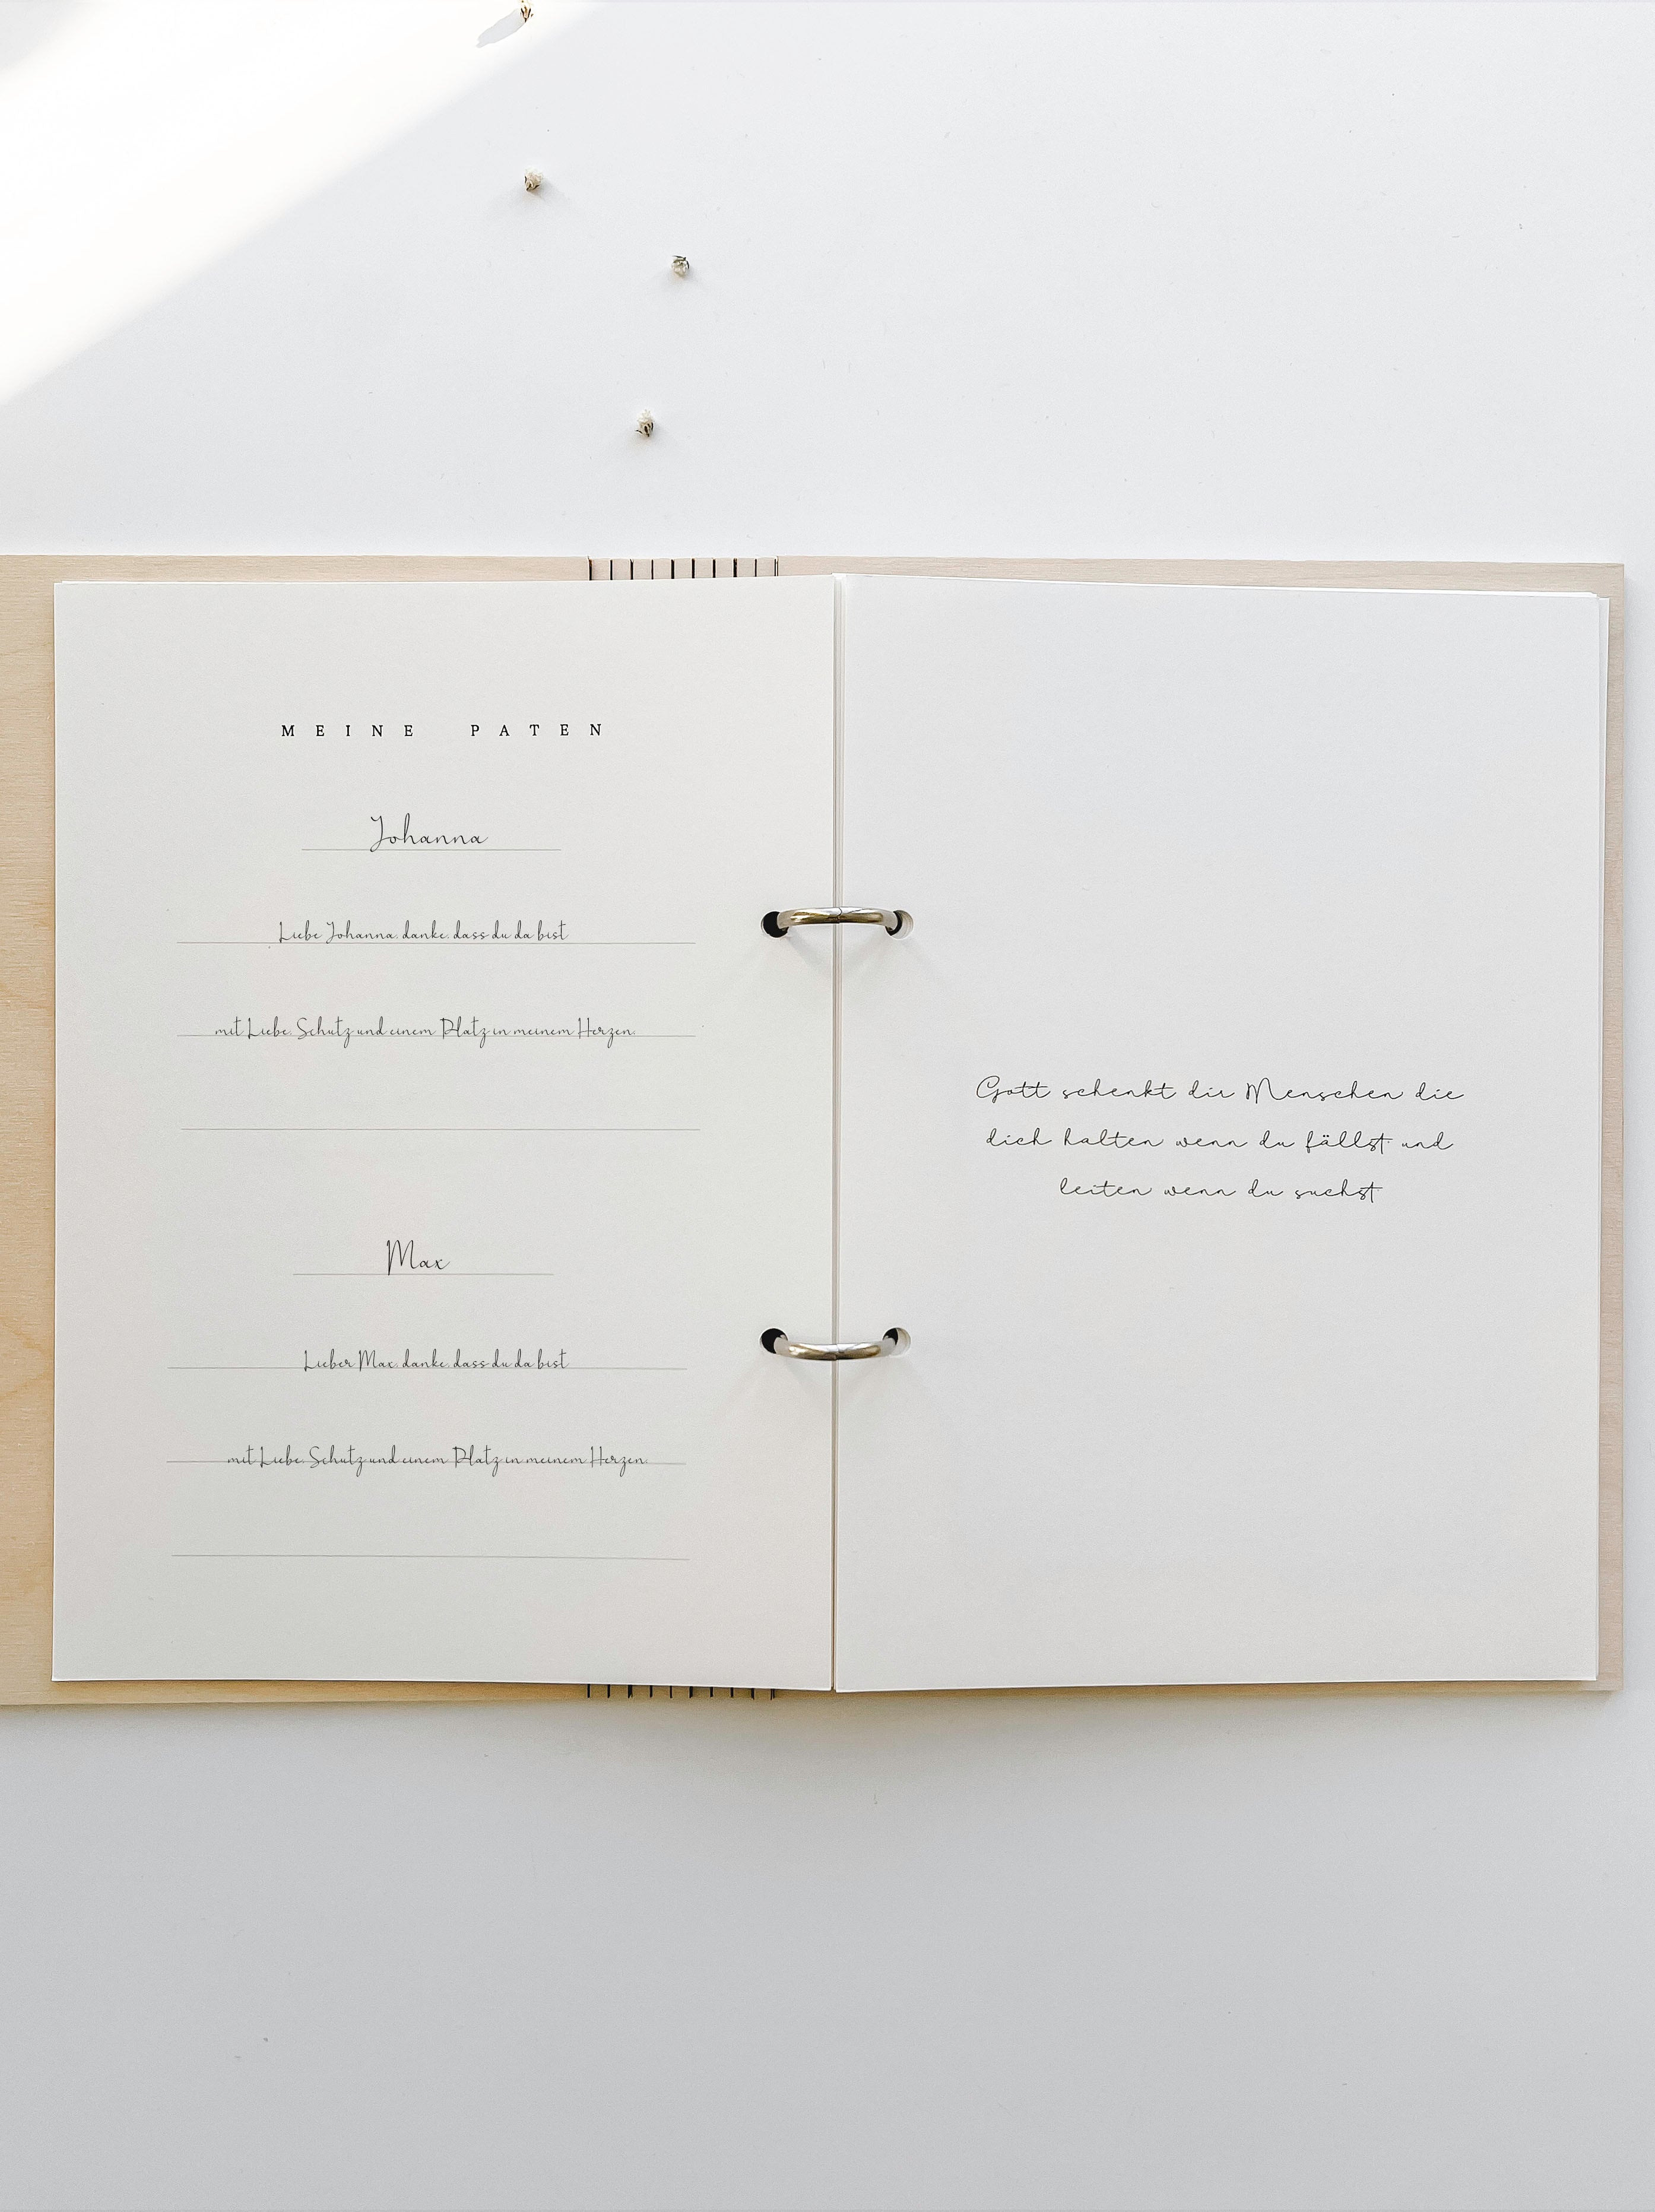 MEINE PATEN
Johanna
Liebe Johanna, danke, dass du da bist
mit Liebe, Schutz und einem Platz in meinem Herzen.
Max
Lieber Max, danke, dass du da bist
mit Liebe, Schutz und einem Platz in meinem Herzen.
Gott schenkt dir Menschen die
dich halten wenn du fällst und
leiten wenn du suchst